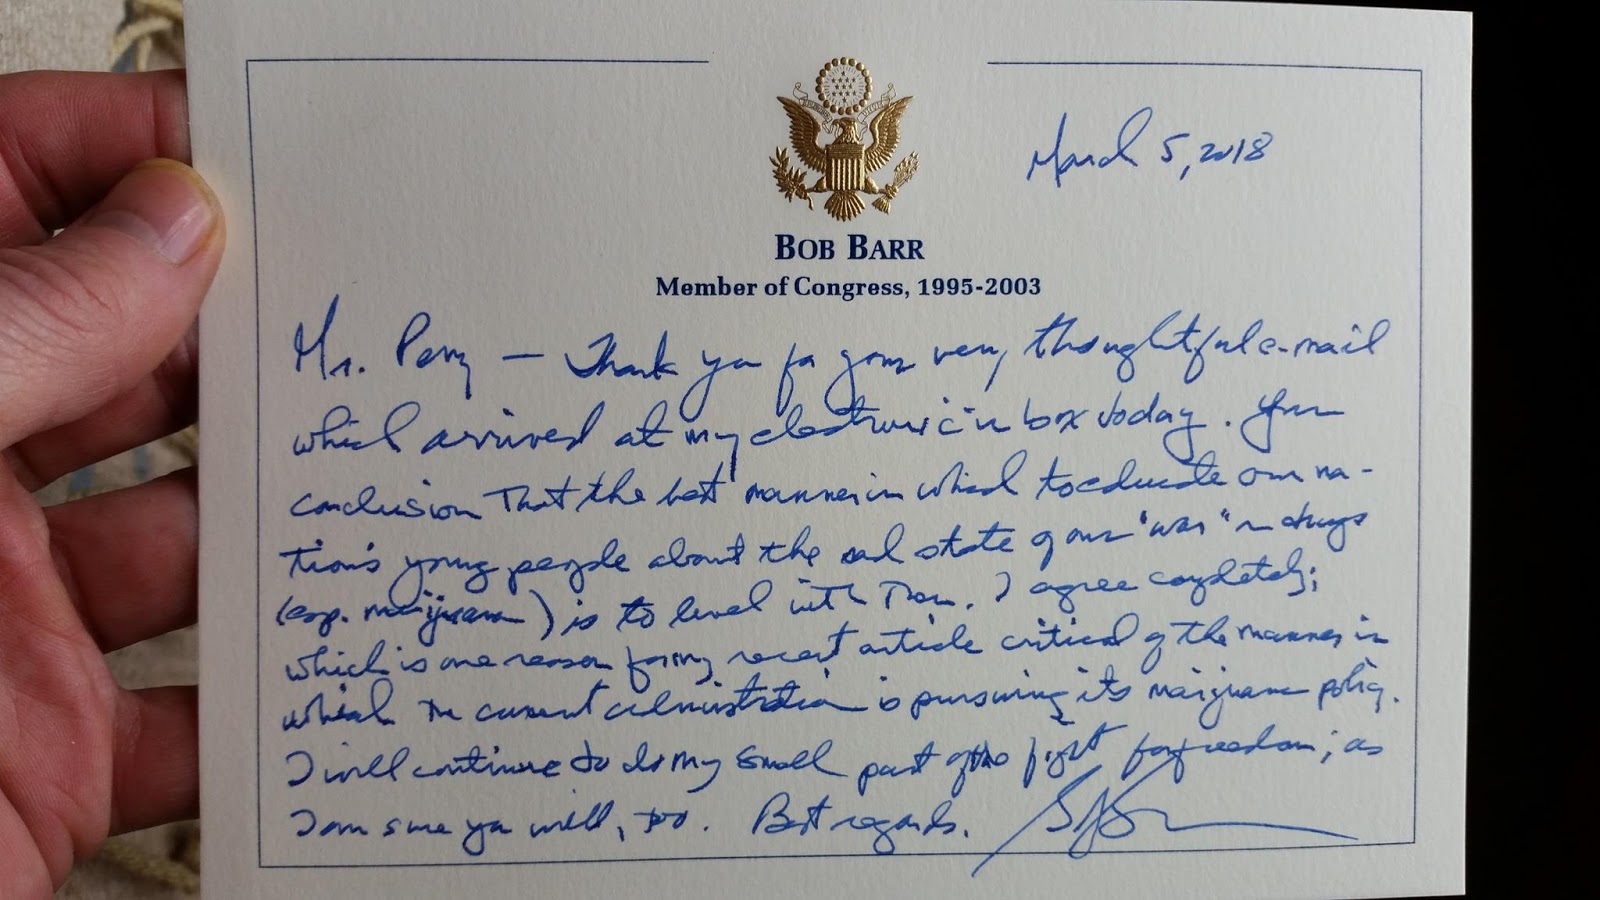 March 5, 2018
BOB BARR
Member of Congress, 1995-2003
Mr. Perry — Thank you for your very thoughtful e-mail
which arrived at my electronic in box today. Your
conclusion that the best manner in which to educate our na-
tion's young people about the sad state of our "war" on drugs
(esp. marijuana) is to level with them. I agree completely;
which is one reason for my recent article critical of the manner in
which the current administration is pursuing its marijuana policy.
I will continue to do my small part of the fight for freedom; as
I am sure you will, too. Best regards,